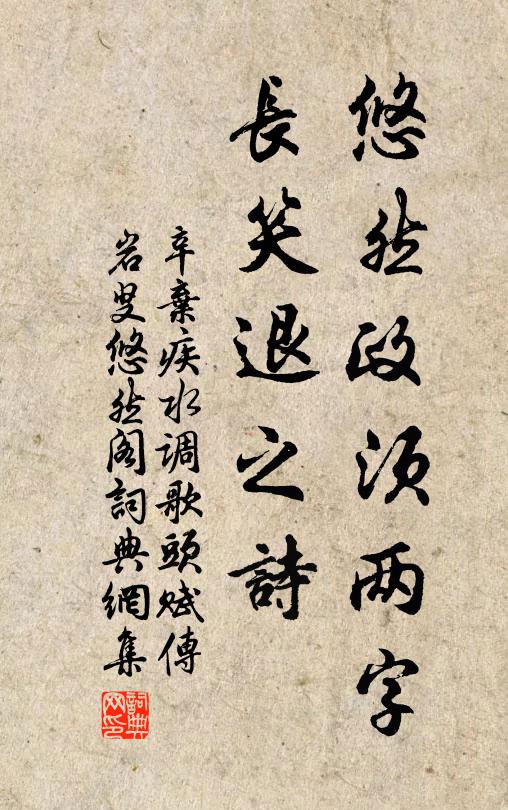 悠然政須两字
長笑退之詩
辛棄疾水調歌頭賦傅
岩叟悠然阁詞典網集
詞典网印